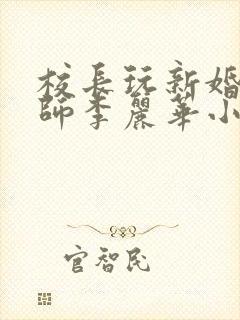 校長玩新婚
師李麗華小
官智民